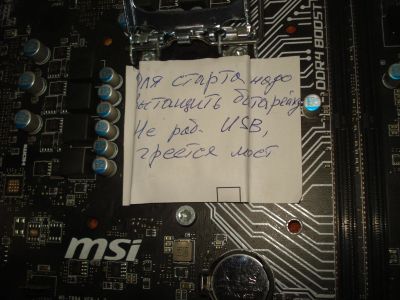 Для старта надо
вытащить батарейку
Не раб. USB,
греется мост
DDR4 BOOST
msi